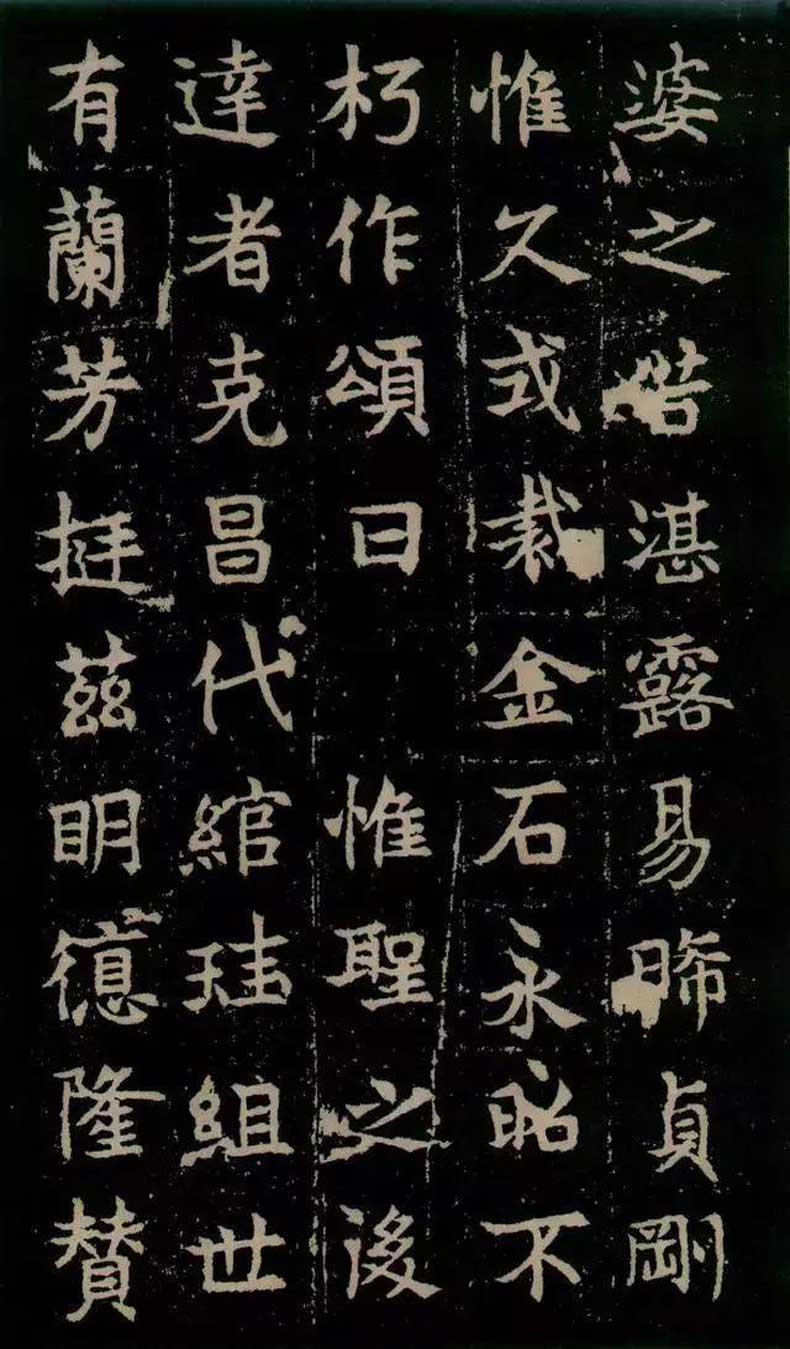 婆之湛露易晞貞剛
惟久式裁金石永昭不
朽作頌曰 惟聖之後
達者克昌代綰珪組世
有蘭芳挺茲明德隆賛